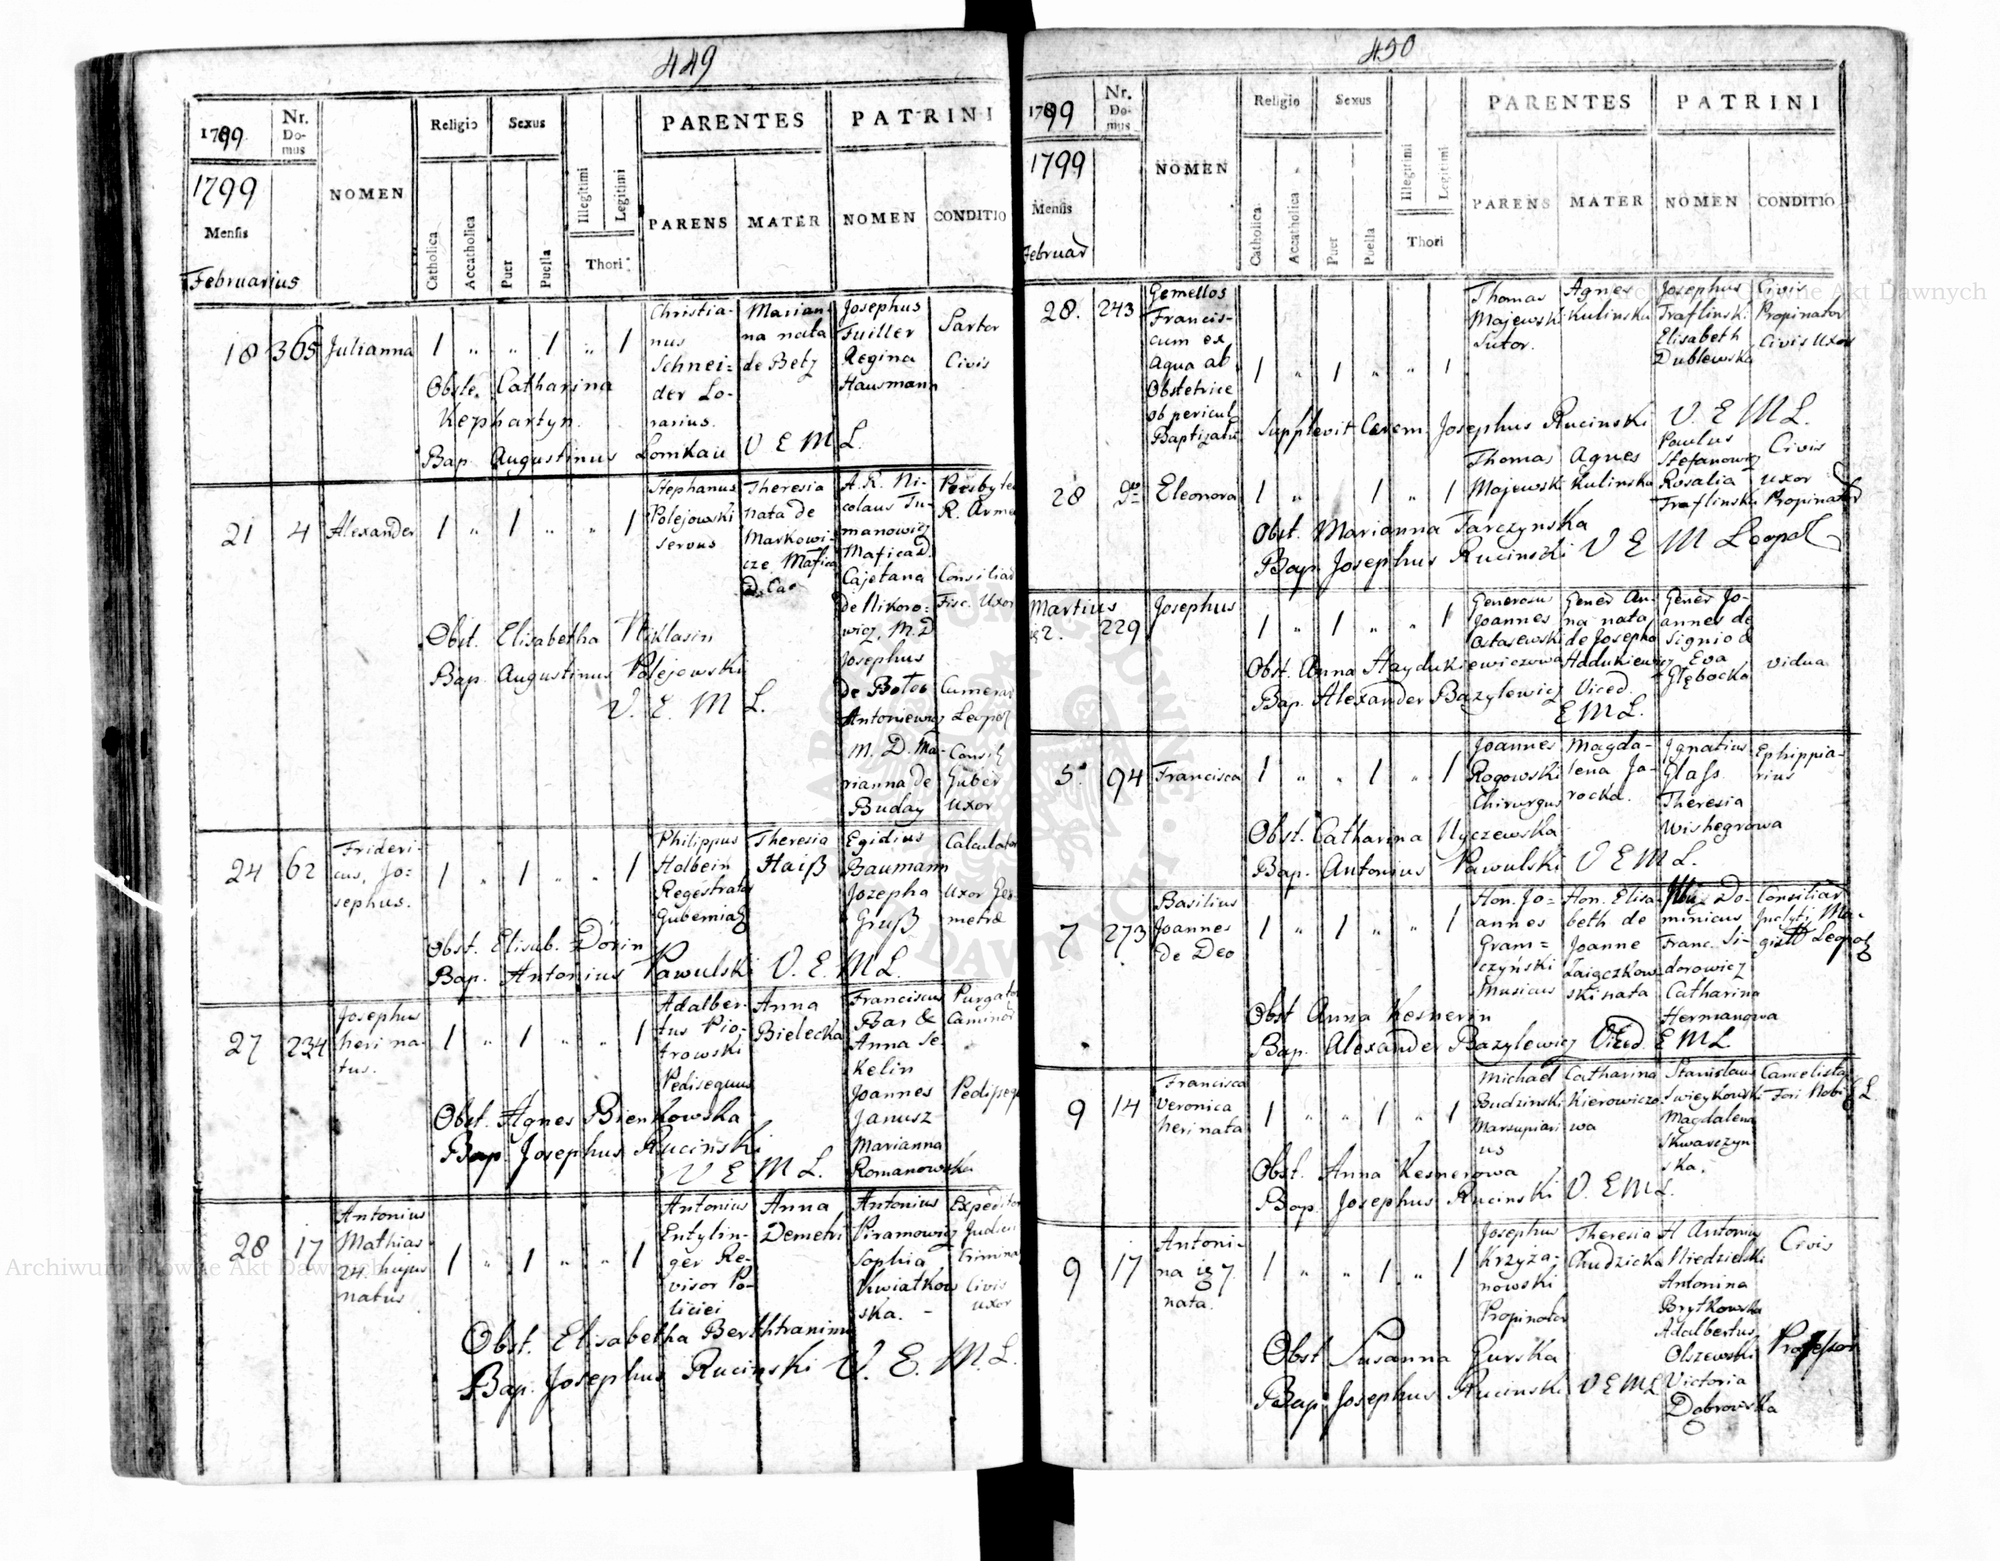 449
1799.
Nr. Domus
NOMEN
Religio
Sexus
PARENTES
PATRINI
1799
Mensis
Februarius
Catholica
Accatholica
Puer
Puella
Illegitimi
Legitimi
Thori
PARENS
MATER
NOMEN
CONDITIO
18 365 Julianna 1 " " 1 " 1
Christia-
nus
Schnei=
der Lo-
rarius.
Marian-
na nata
de Betz
Josephus
Tuiller
Regina
Hausmann
Sartor
Civis
Obste. Catharina
Kephartyn.
Bap. Augustinus Lomkau V E M L.
21 4 Alexander 1 " 1 " " 1
Stephanus
Polejowski
servus
Theresia
nata de
Markowi-
cze
A. R. Ni-
colaus Tu-
manowicz
Cajetana
de Nikoro=
wicz, M. D
Josephus
de Botoz
Antoniewicz
M. D. Ma-
rianna de
Buday
Presbyter
R. Armen
Consiliar
Fisc. Uxor
Cameral
Leopol
Consil
Guber
uxor
Obst. Elisabetha Niklasin
Bap. Augustinus Polejowski
V. E. M L.
24 62
Frideri-
cus, Jo=
sephus.
1 " 1 " " 1
Philippus
Holbein
Regestrator
Gubernial
Theresia
Haiß
Egidius
Baumann
Jozepha
Gruß
Calculator
uxor Geo-
metræ
Obst. Elisab. Dorin
Bap. Antonius Pawulski V. E. M L.
27 234
Josephus
heri na-
tus.
1 " 1 " " 1
Adalber-
tus Pio-
trowski
Pedisequus
Anna
Bielecka
Franciscus
Bar &
Anna Se-
kelin
Joannes
Janusz
Marianna
Romanowska
Purgator
Caminor
Pediseq
Obst. Agnes Bienkowska
Bap. Josephus Rucinski
V E M L.
28 17
Antonius
Mathias
24. hujus
natus
1 " 1 " " 1
Antonius
Entzlin-
ger Re-
visor Po-
liciei
Anna
Demetri
Antonius
Piramowicz
Sophia
Kwiatkow
ska. -
Expeditor
Judicii
Crimina
Civis
uxor
Obst. Elisabetha
Bap. Josephus Rucinski V. E. M L.
450
1799
Nr. Domus
NOMEN
Religio
Sexus
PARENTES
PATRINI
1799
Mensis
Februar
Catholica
Accatholica
Puer
Puella
Illegitimi
Legitimi
Thori
PARENS
MATER
NOMEN
CONDITIO
28. 243
Gemellos
Francis-
cum ex
Aqua ab
Obstetrice
ob pericul
Baptizatu
1 " 1 " " 1
Thomas
Majewski
Sutor.
Agnes
Kulinska
Josephus
Traflinski
Elisabeth
Dublewska
Civis
Propinator
Civis Uxor
Supplevit Cerem. Josephus Rucinski V. E M L.
28 Eleonora 1 " 1 " 1
Thomas
Majewski
Agnes
Kulinska
Paulus
Stefanowicz
Rosalia
Traflinska
Civis
uxor
Propinator
Obst. Marianna Tarczynska
Bap. Josephus Rucinski V E M Leopol
Martius
2. 229
Josephus
1 " 1 " " 1
Generosus
Joannes
Ostasewski
Gener An-
na nata
de Josepho
Haddukiewicz
Gener Jo-
annes de
Signio &
Eva
Głębocka
vidua
Obst. Anna Haydukiewiczowa
Bap. Alexander Bazylewicz Viced.
E M L.
5. 94 Francisca 1 " " 1 " 1
Joannes
Rogowski
Chirurgus
Magda-
lena Ja-
rocka.
Ignatius
Glass.
Theresia
Wishegrowa
Ephippia-
rius
Obst. Catharina Uyczewska
Bap. Antonius Pawulski V E M L.
7 273
Basilius
Joannes
de Deo
1 " 1 " " 1
Hon. Jo=
annes
Gram=
czyński
Musicus
Hon. Elisa-
beth de
Joanne
Zaigczkow-
ski nata
Do-
minicus
Franc. Si-
dorowicz
Catharina
Hermanowa
Consiliar
Inclyti Ma-
gistt Leopol
Obst Anna Kesnerin
Bap. Alexander Bazylewicz Viced. E M L
9 14
Francisca
Veronica
heri nata
1 " " 1 " 1
Michael
Budzinski
Marsupiari
us
Catharina
Kierowiczo-
wa
Stanislaus
Swieykowski
Magdalena
Skwarczyn
ska.
Cancelista
Fori Nobil L.
Obst. Anna Kesnerowa
Bap. Josephus Rucinski V. E M L.
9 17
Antoni-
na 7
nata.
1 " " 1 " 1
Josephus
Krzyża-
nowski
Propinator
Theresia
Chudzicka
H Antonius
Niedzielski
Antonina
Brytkowska
Adalbertus
Olszewski
Victoria
Dobrowska
Civis
Professor
Obst Susanna Gurska
Bap. Josephus Rucinski V E M L
Archiwum Główne Akt Dawnych